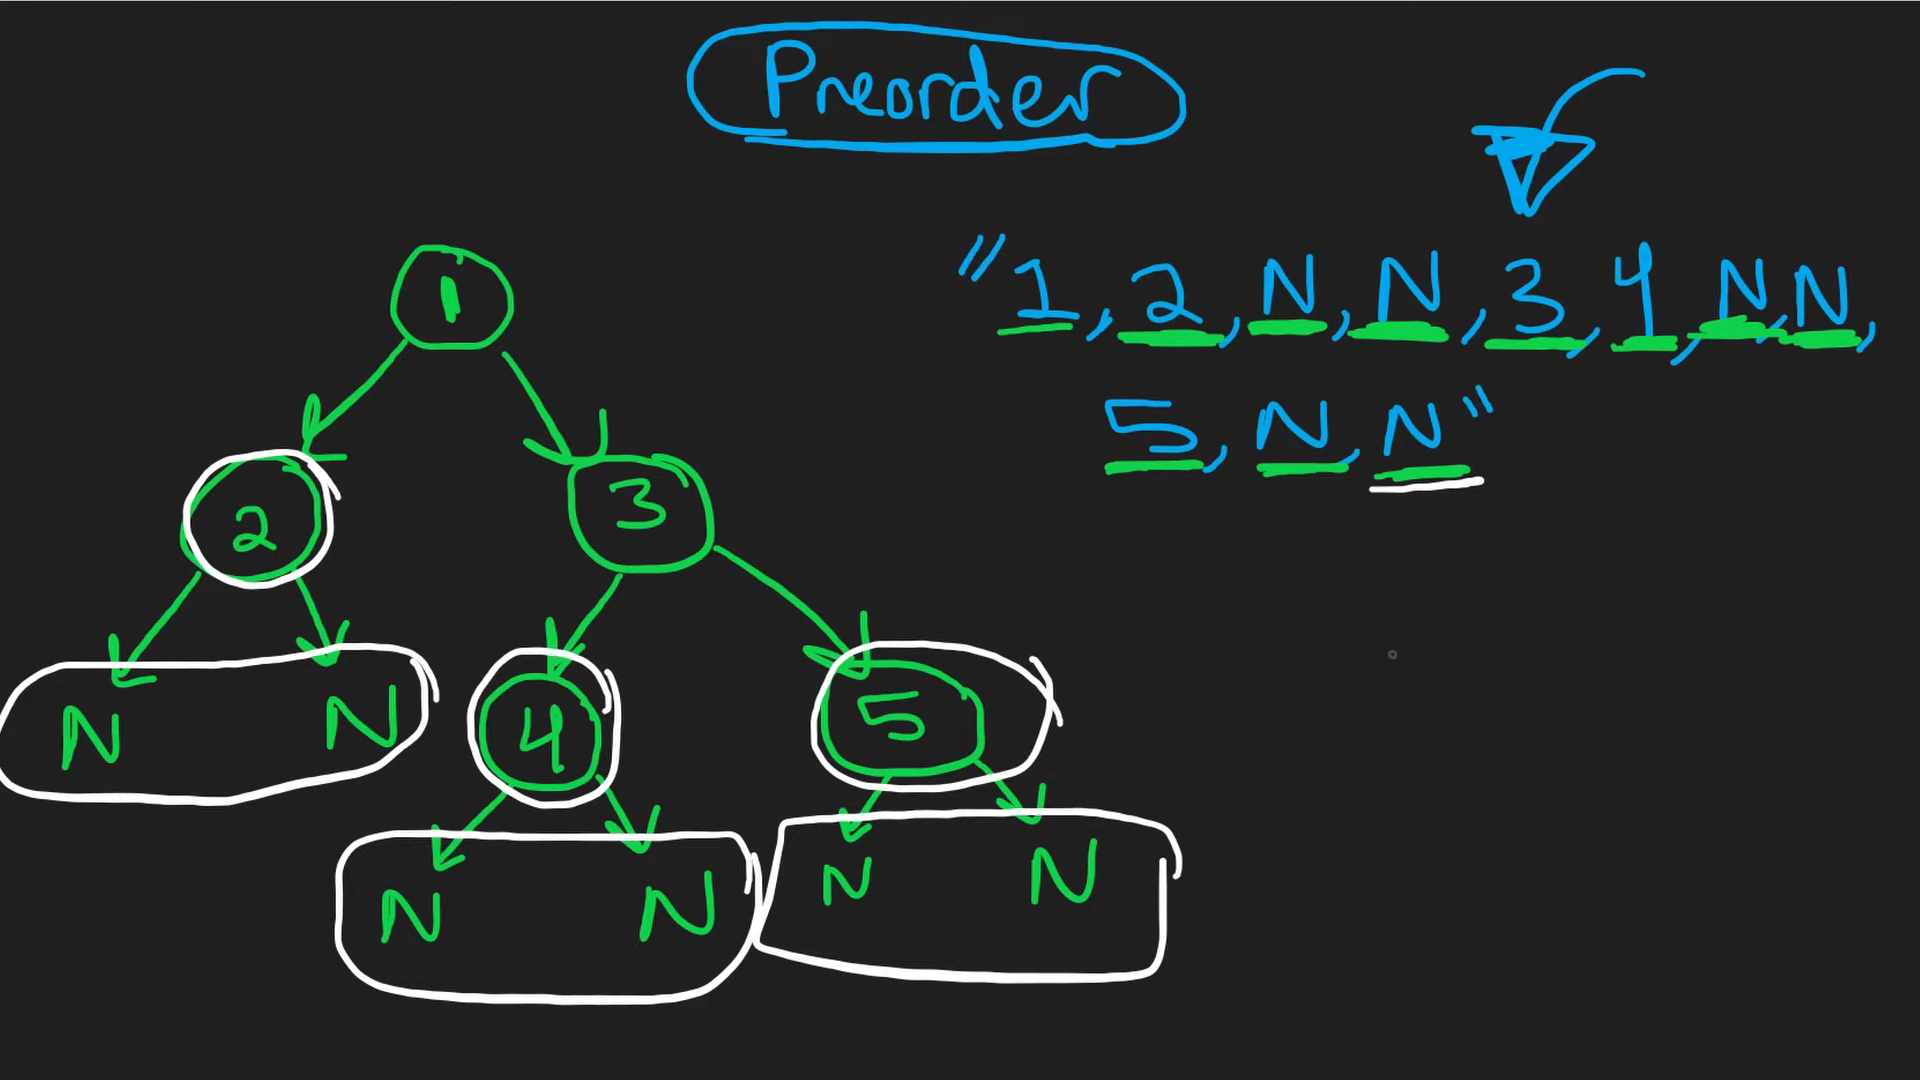 Preorder
"1, 2, N, N, 3, 4, N, N,
5, N, N"
1
2 3
N N 4 5
N N N N